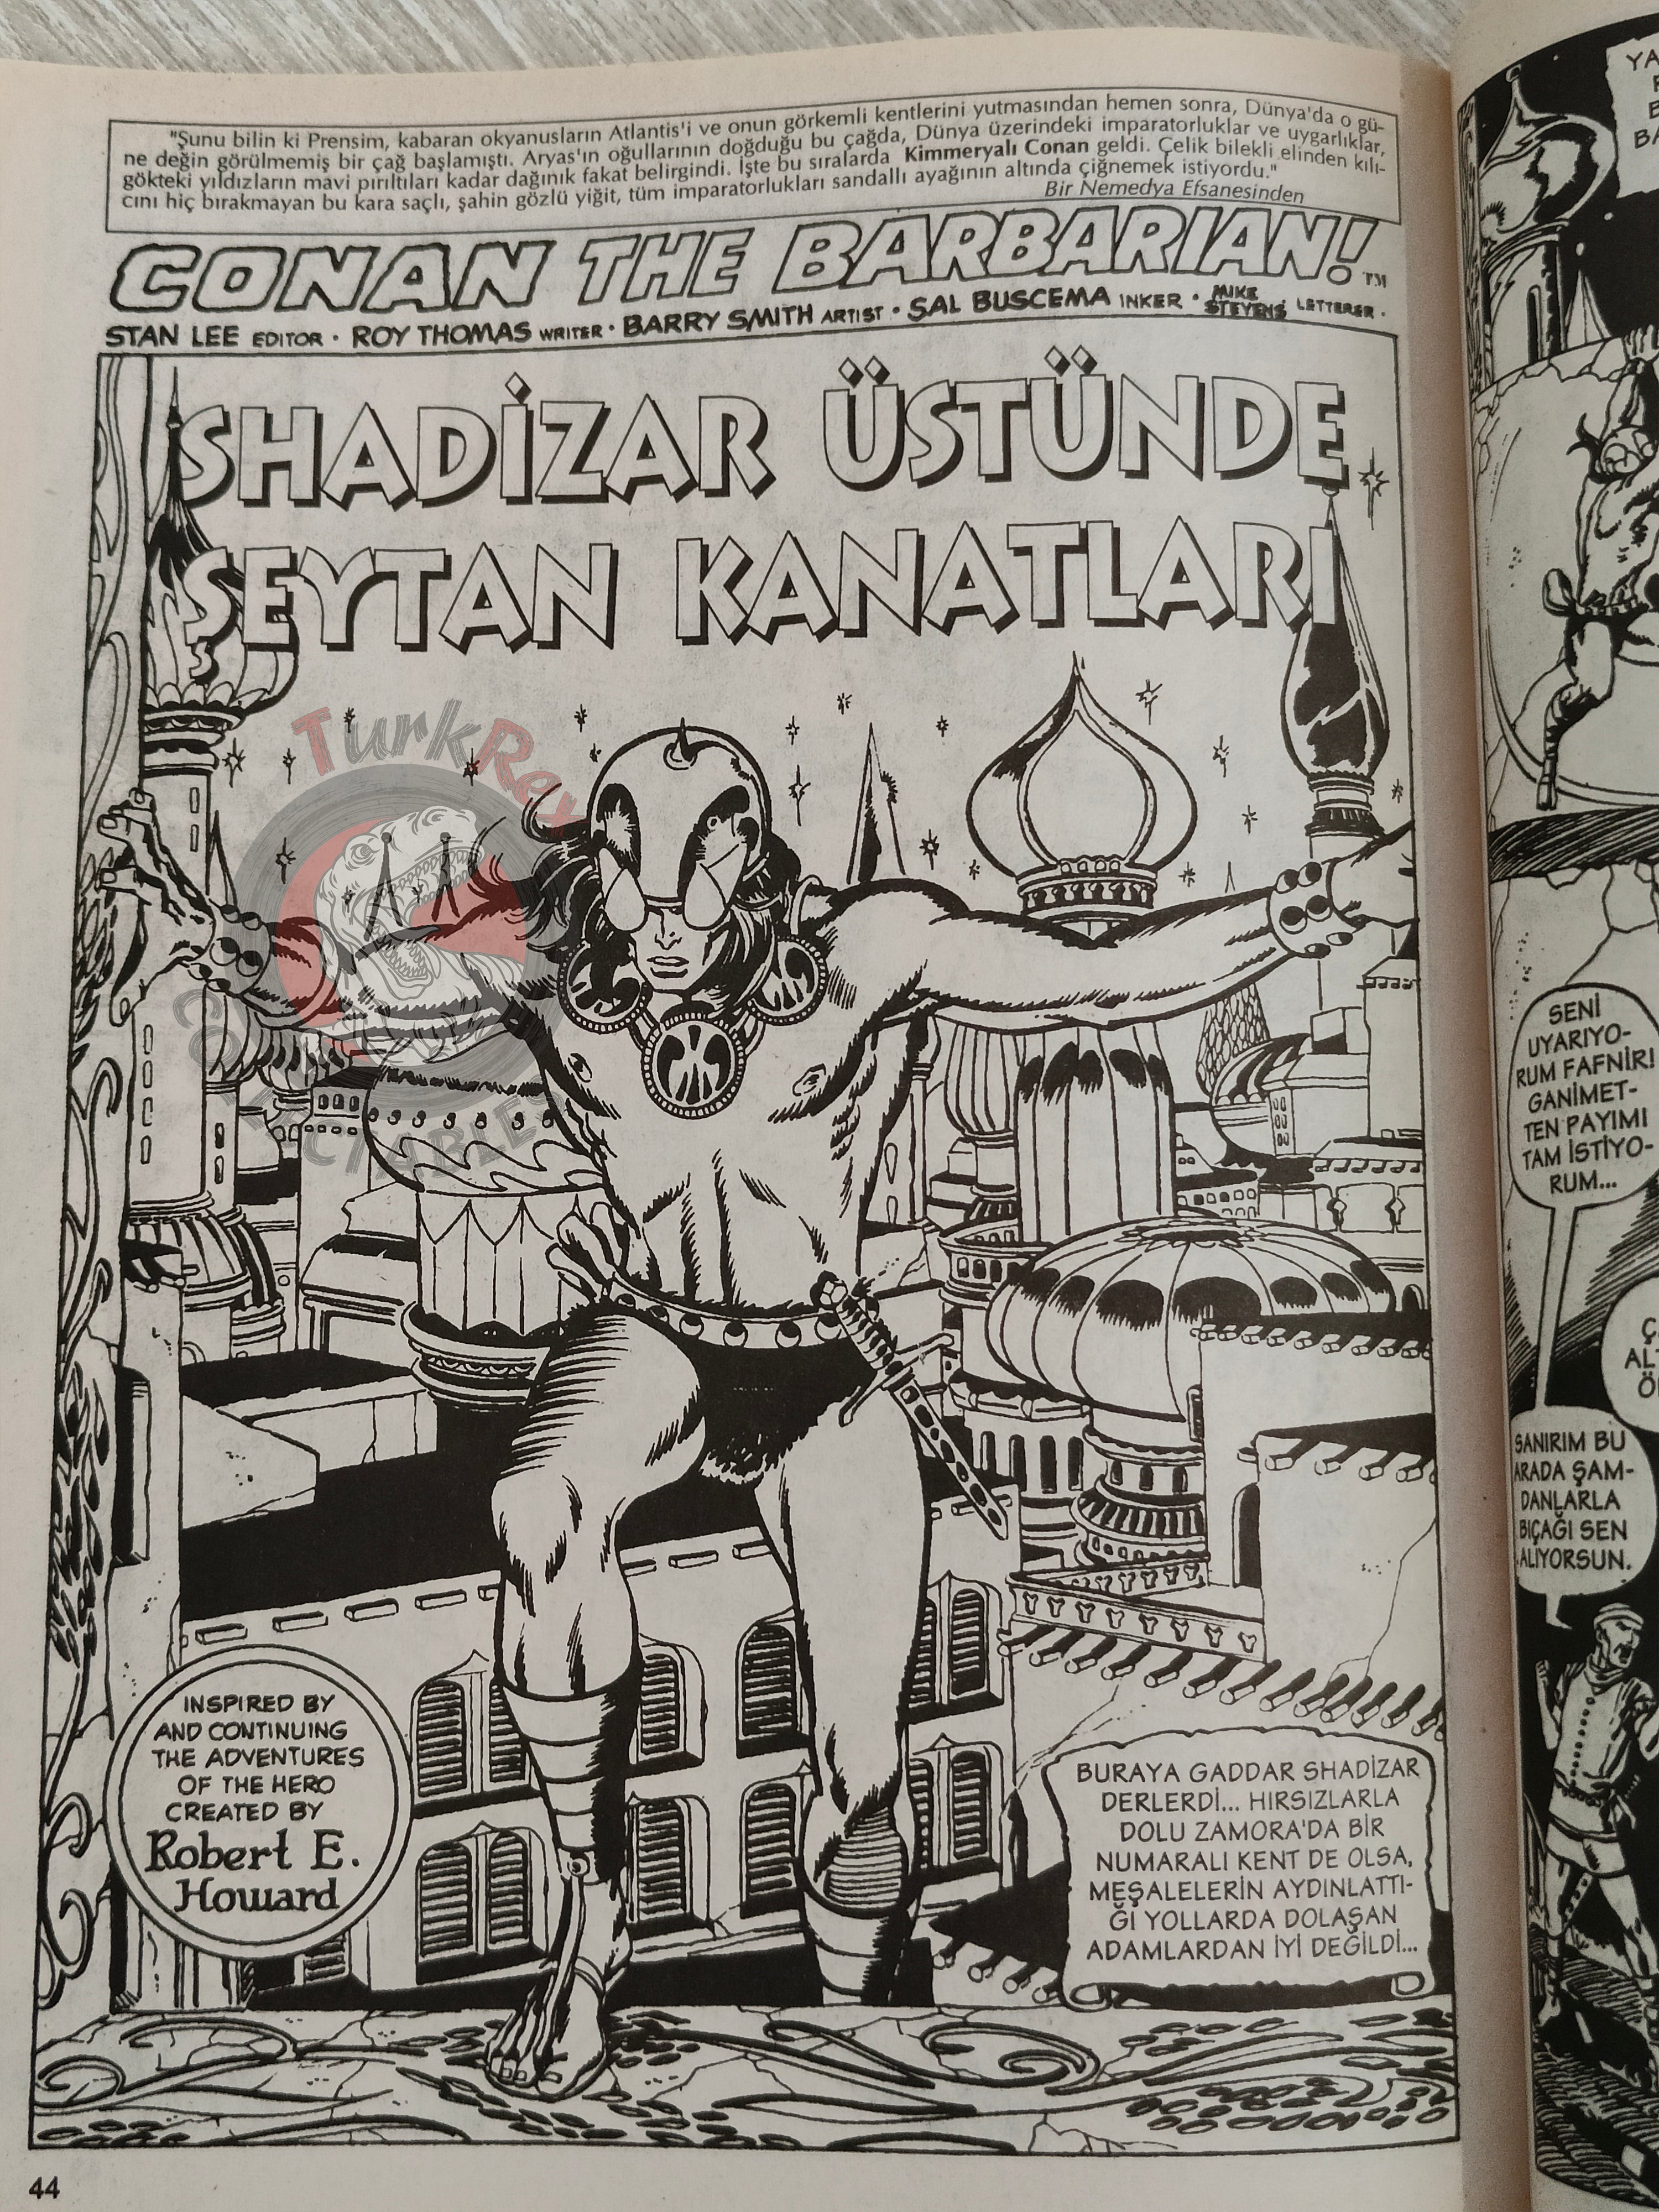 "Şunu bilin ki Prensim, kabaran okyanusların Atlantis'i ve onun görkemli kentlerini yutmasından hemen sonra, Dünya'da o gü-
ne değin görülmemiş bir çağ başlamıştı. Aryas'ın oğullarının doğduğu bu çağda, Dünya üzerindeki imparatorluklar ve uygarlıklar,
gökteki yıldızların mavi pırıltıları kadar dağınık fakat belirgindi. İşte bu sıralarda Kimmeryalı Conan geldi. Çelik bilekli elinden kılı-
cını hiç bırakmayan bu kara saçlı, şahin gözlü yiğit, tüm imparatorlukları sandallı ayağının altında çiğnemek istiyordu."
Bir Nemedya Efsanesinden
CONAN THE BARBARIAN!™
STAN LEE EDITOR · ROY THOMAS WRITER · BARRY SMITH ARTIST · SAL BUSCEMA INKER · MIKE STEVENS LETTERER ·
SHADİZAR ÜSTÜNDE
ŞEYTAN KANATLARI
TurkRex
COLLECTABLES
INSPIRED BY
AND CONTINUING
THE ADVENTURES
OF THE HERO
CREATED BY
Robert E.
Howard
BURAYA GADDAR SHADİZAR
DERLERDİ... HIRSIZLARLA
DOLU ZAMORA'DA BİR
NUMARALI KENT DE OLSA,
MEŞALELERİN AYDINLATTI-
ĞI YOLLARDA DOLAŞAN
ADAMLARDAN İYİ DEĞİLDİ...
44
YA
B
BA
SENİ
UYARIYO-
RUM FAFNİR!
GANİMET-
TEN PAYIMI
TAM İSTİYO-
RUM...
Ç
ALT
SANIRIM BU
ARADA ŞAM-
DANLARLA
BIÇAĞI SEN
ALIYORSUN.